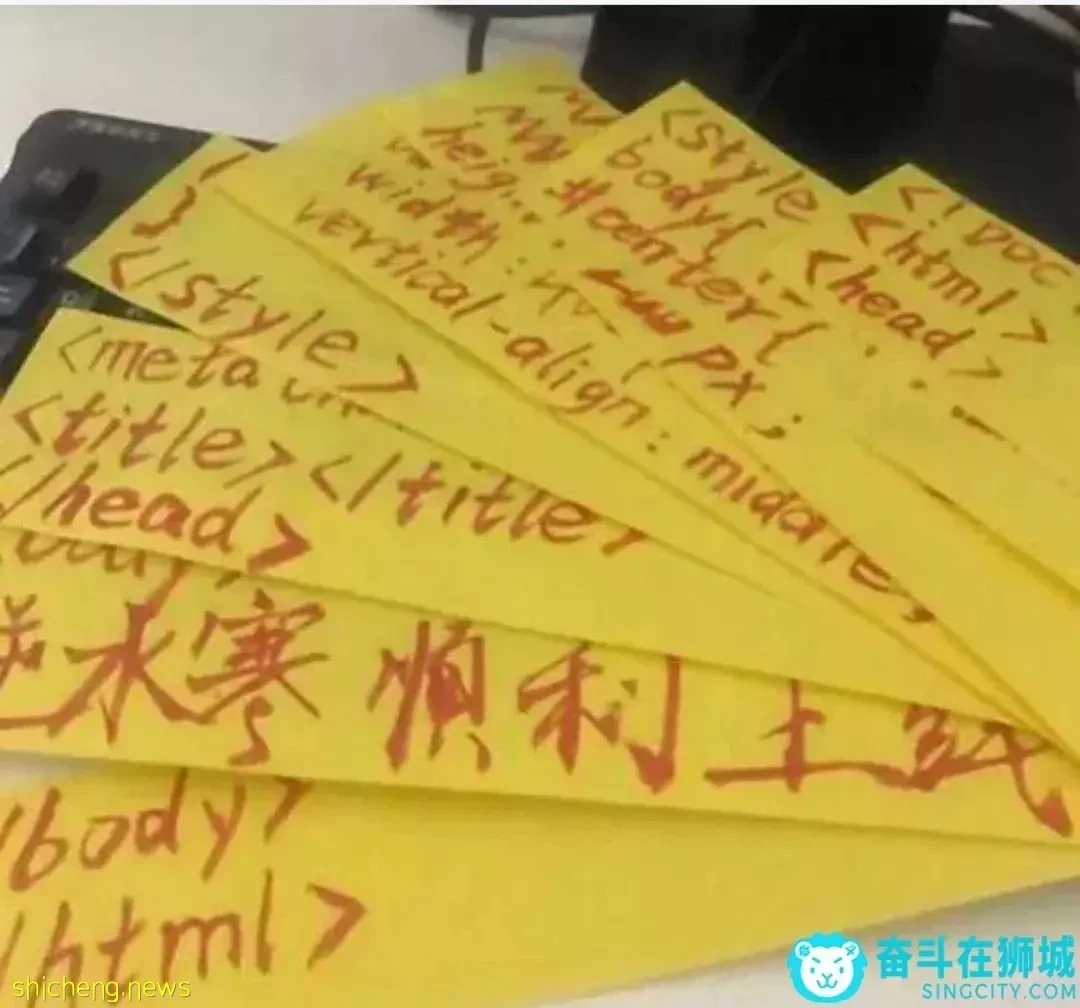 <!DOC
<html>
<head>
<style
body{
#center{
px;
heig
width:
vertical-align: middle;
}
</style>
<meta
<title></title>
</head>
逆水寒 順利上线
</body>
</html>
shicheng.news
奋斗在狮城
SINGCITY.COM